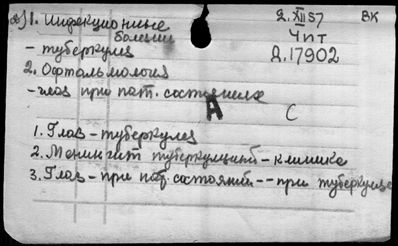 1. Инфекционные болезни
2.XII 57
ВК
- туберкулез
Чит
Д.17902
2. Офтальмология
- глаз при пат. состояниях
А
С
1. Глаз - туберкулез
2. Менингит туберкулезный - клиника
3. Глаз - при пат. состояний -- при туберкулезе